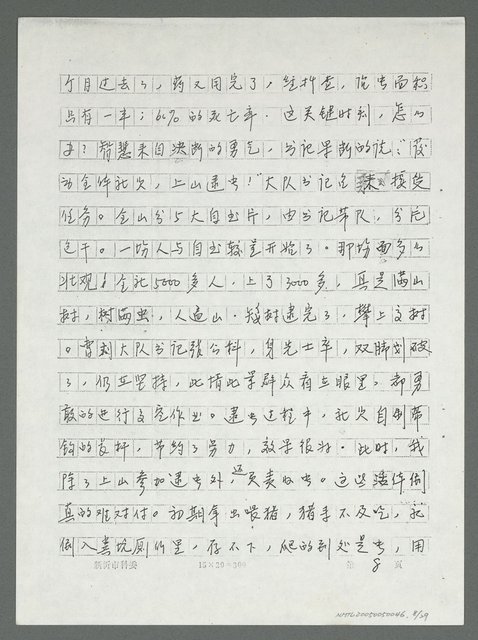 个月过去了，药又用完了，经检查，治虫面积
只有一半；60%的死亡率．这关键时刻，怎么
办？智慧来自决断的勇气，书记果断的说："发
动全体社员，上山逮虫！"大队书记是 接受
任务。全山分5大自虫片，由书记带队，分片
包干。一场人与自虫较量开始了。那场面多么
壮观！全社5000多人，上了3000多，真是满山
树，树满虫，人遍山．矮树逮完了，攀上高树
。曹刘大队书记张公科，身先士卒，双脚划破
了，仍在坚持，此情此景群众看在眼里，都勇
敢的进行高空作业。逮虫过程中，社员自制带
钩的长杆，节约了劳力，效果很好．此时，我
除了上山参加逮虫外，还负责收虫。这些活体倒
真的难对付。初期拿虫喂猪，猪等不及吃，就
倒入粪坑厕所里，存不下，爬的到处是虫，用
新沂市科委 15×20=300 第 8 页
NMTL20050050046. 8/29